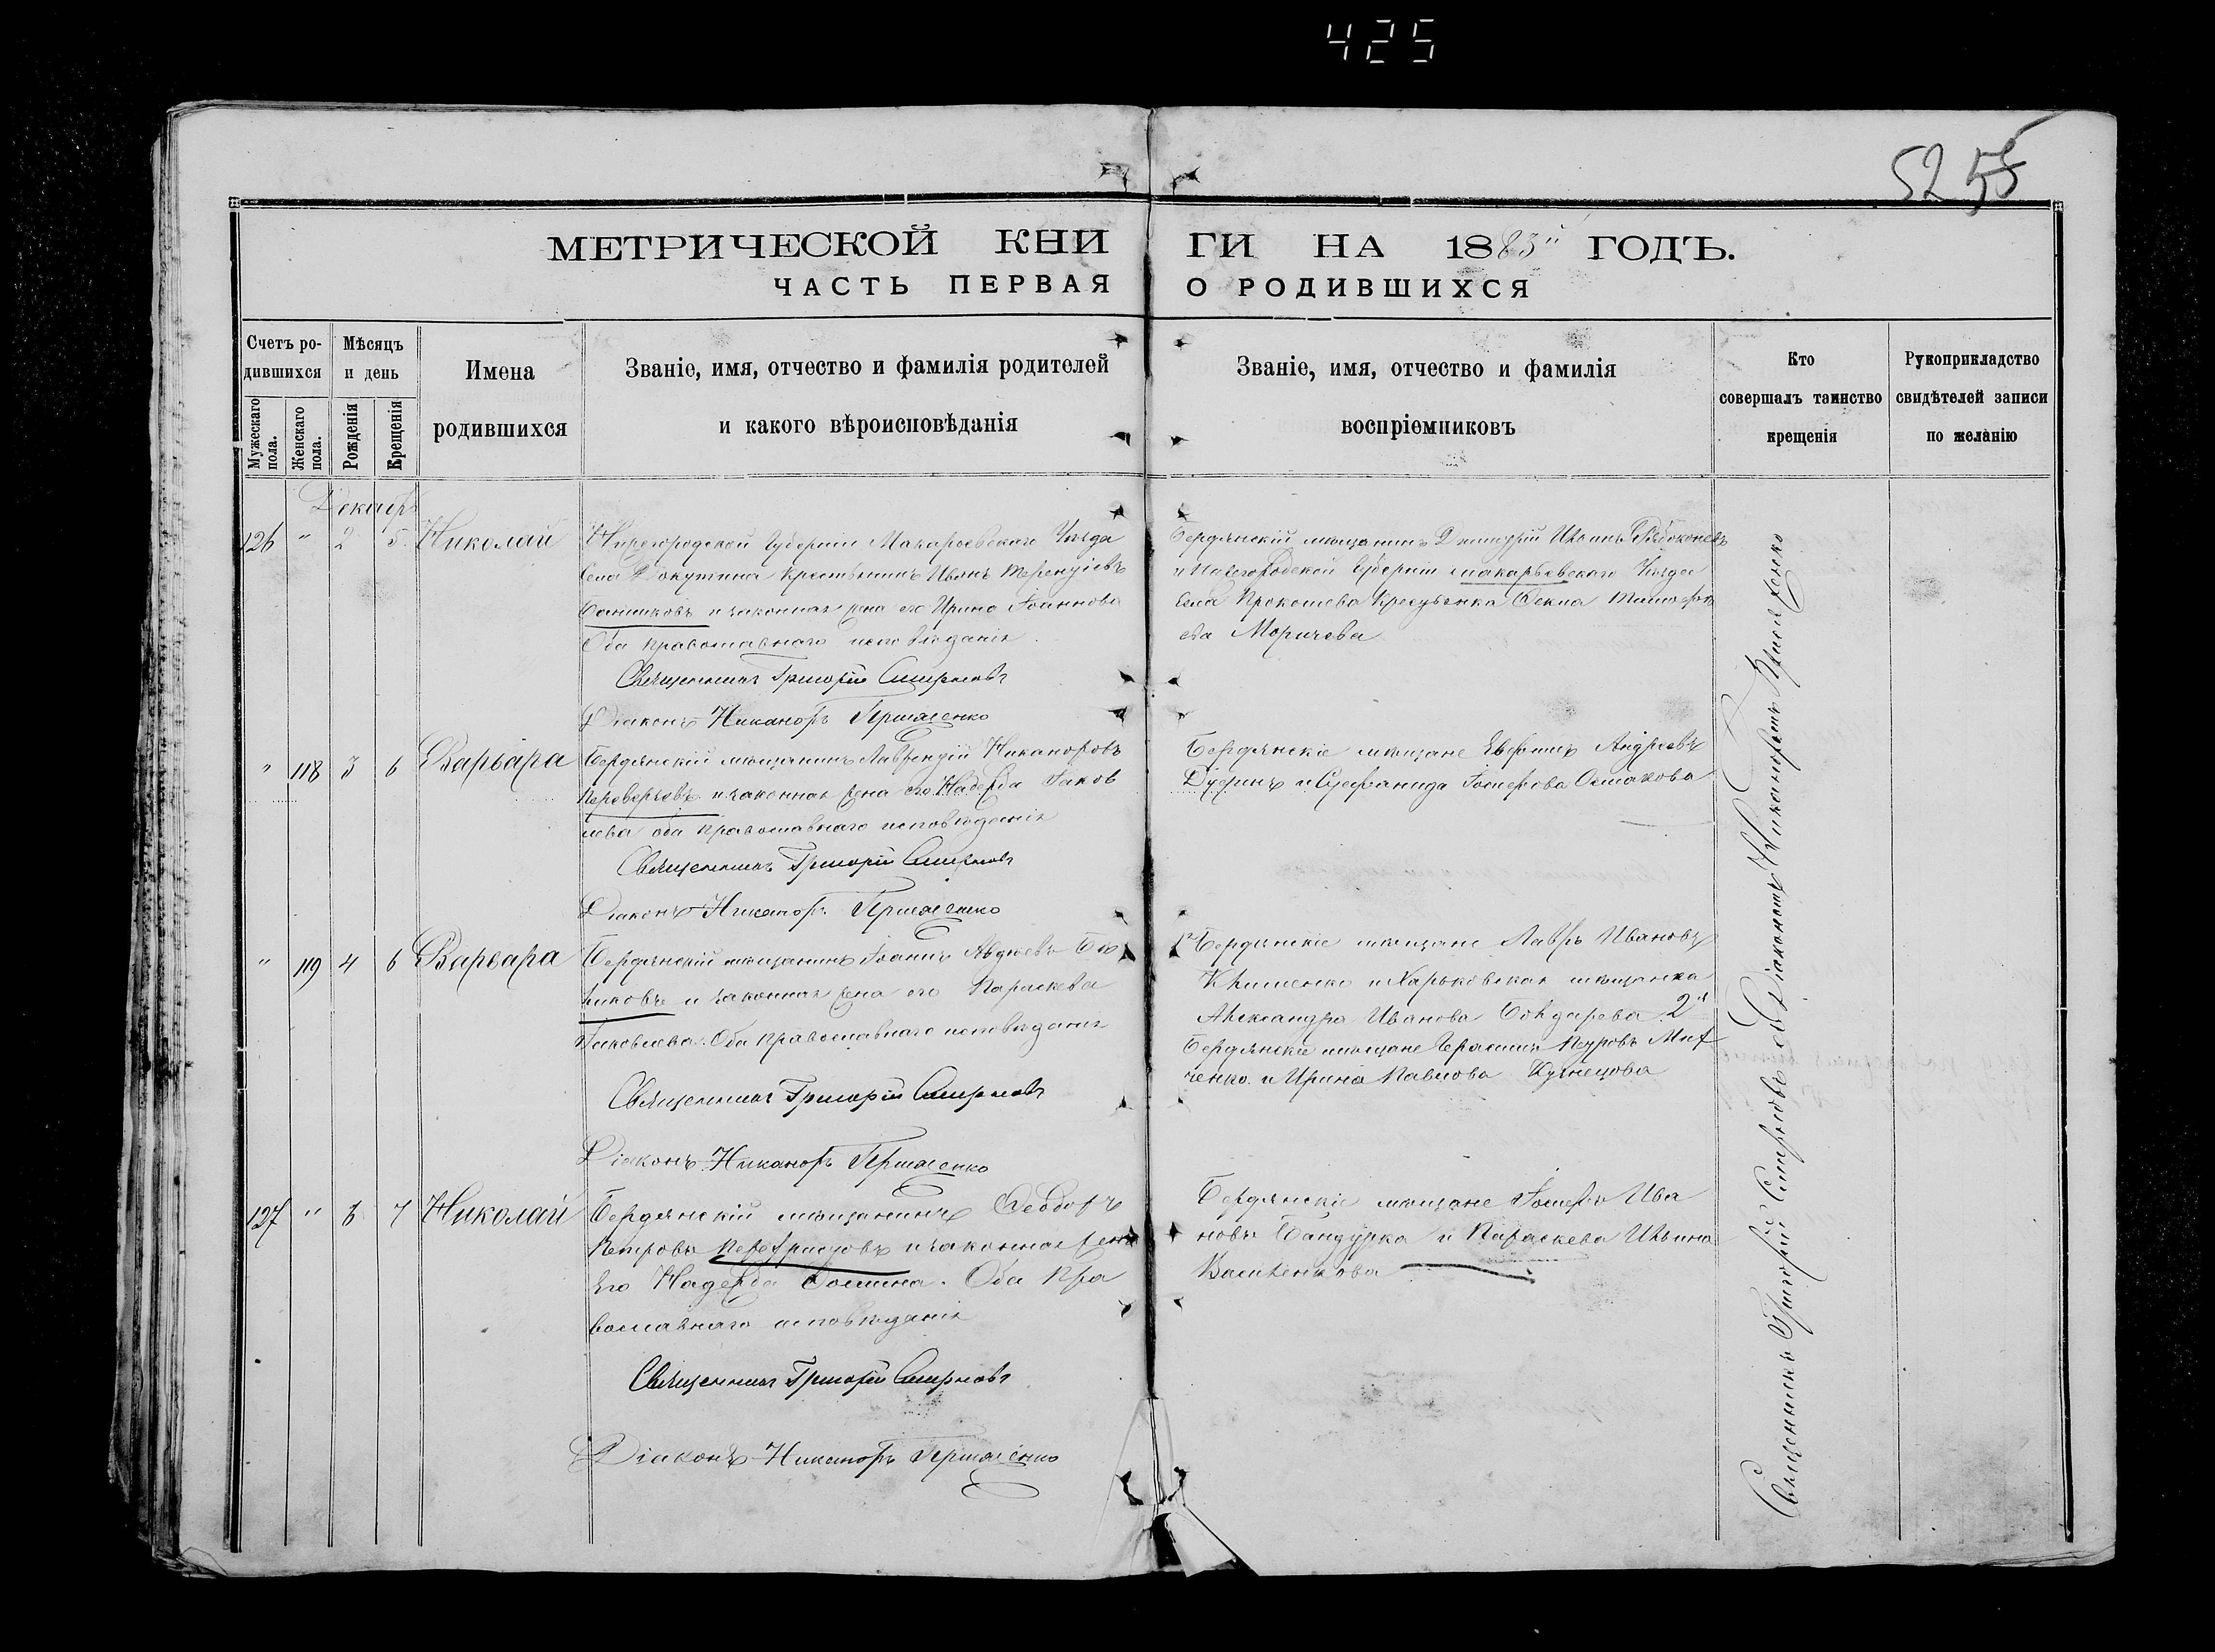 425
52 55
МЕТРИЧЕСКОЙ КНИГИ НА 1883й ГОДЪ.
ЧАСТЬ ПЕРВАЯ О РОДИВШИХСЯ
Счетъ родившихся
Мужескаго пола.
Женскаго пола.
Мѣсяцъ и день
Рожденія
Крещенія
Имена
родившихся
Званіе, имя, отчество и фамилія родителей
и какого вѣроисповѣданія
Званіе, имя, отчество и фамилія
воспріемниковъ
Кто
совершалъ таинство
крещенія
Рукоприкладство
свидѣтелей записи
по желанію
Декабрь
126 " 2 5 Николай
Нижегородской Губерніи Макарьевскаго Уѣзда
Села крестьянинъ Иванъ Терентіевъ
Банниковъ и законная жена его Ирина Іоаннова
Оба православнаго исповѣданія.
Священникъ Григорій Смирновъ
Діаконъ Никаноръ
Бердянскій мѣщанинъ Димитрій Ивановъ
и Нижегородской Губерніи Макарьевскаго Уѣзда
Села Крестьянка
ева
" 118 3 6 Варвара
Бердянскій мѣщанинъ Лаврентій Никаноровъ
и законная жена его Надежда Іаков
лева оба православнаго исповѣданія
Священникъ Григорій Смирновъ
Діаконъ Никаноръ
Бердянскіе мѣщане Евфимъ Андреевъ
и Стефанида Іосифова
" 119 4 6 Варвара
Бердянскій мѣщанинъ Іоаннъ Авдѣевъ
и законная жена его Параскева
Іаковлева. Оба православнаго исповѣданія
Священникъ Григорій Смирновъ
Діаконъ Никаноръ
1е Бердянскіе мѣщане Лавръ Ивановъ
и Харьковская мѣщанка
Александра Иванова Бондарева 2е
Бердянскіе мѣщане Герасимъ Петровъ
ченко и Ирина Павлова Кузнецова
127 " 7 Николай
Бердянскій мѣщанинъ Ѳеодоръ
Петровъ и законная жена
его Надежда Ѳомина. Оба Пра
вославнаго исповѣданія
Священникъ Григорій Смирновъ
Діаконъ Никаноръ
Бердянскіе мѣщане Іосифъ Ива
новъ Бандурка и Параскева Ильина
Священникъ Григорій Смирновъ съ Діакономъ Никаноромъ